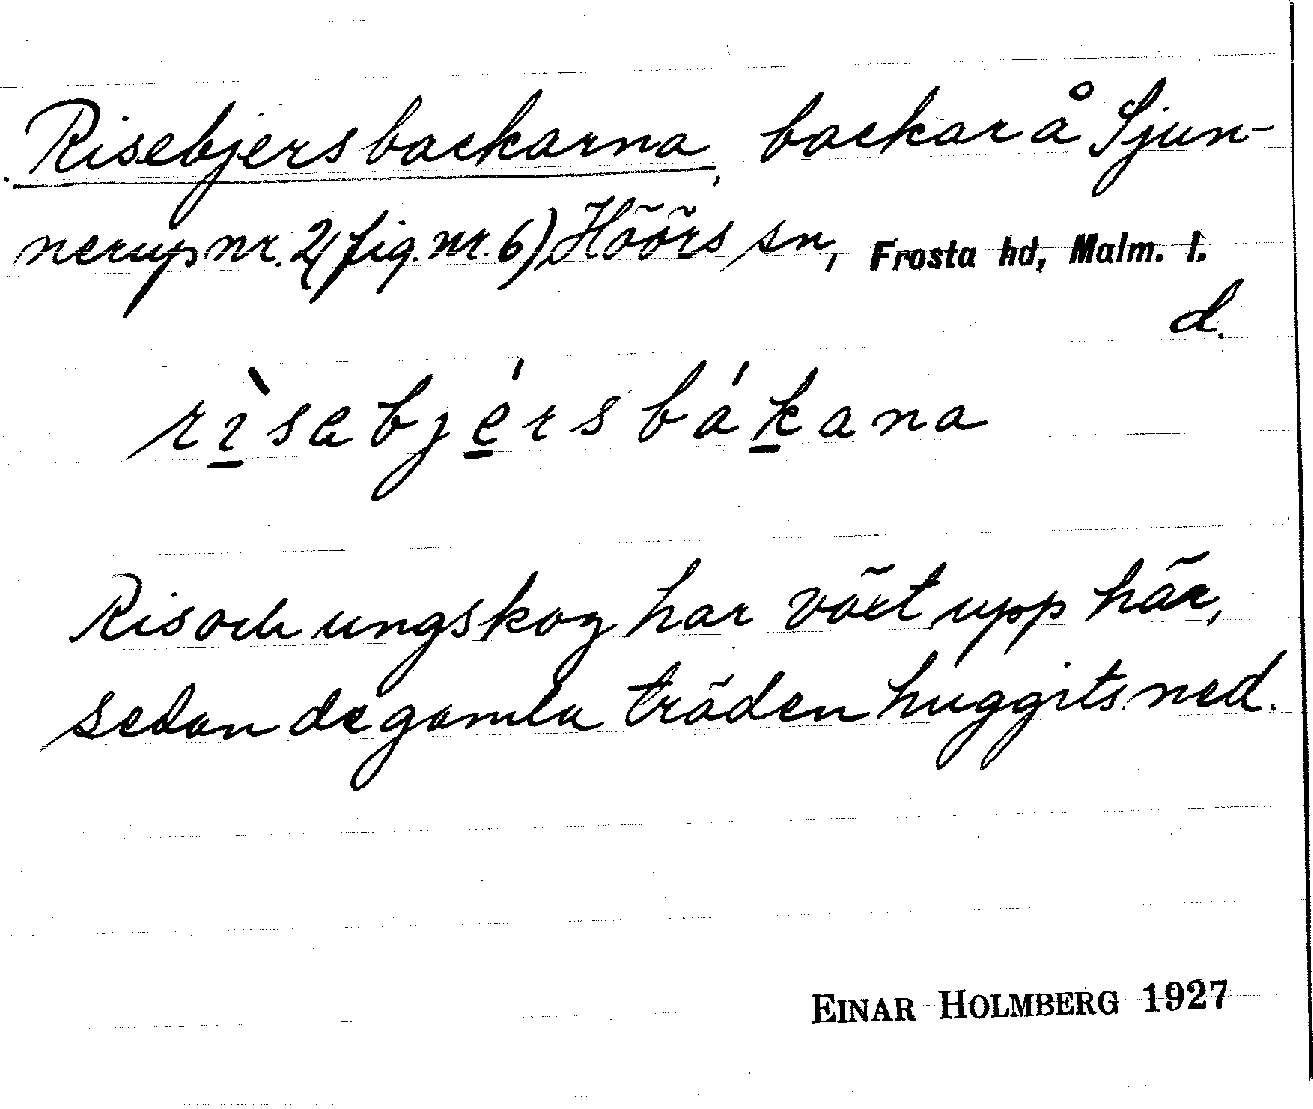 Risebjersbackarna, backar å Sjun-
nerup nr. 2 (fig. nr. 6) Höörs sn, Frosta hd, Malm. l.
d.
rìsebjérsbákana
Ris och ungskog har växt upp här,
sedan de gamla träden huggits ned.
EINAR HOLMBERG 1927